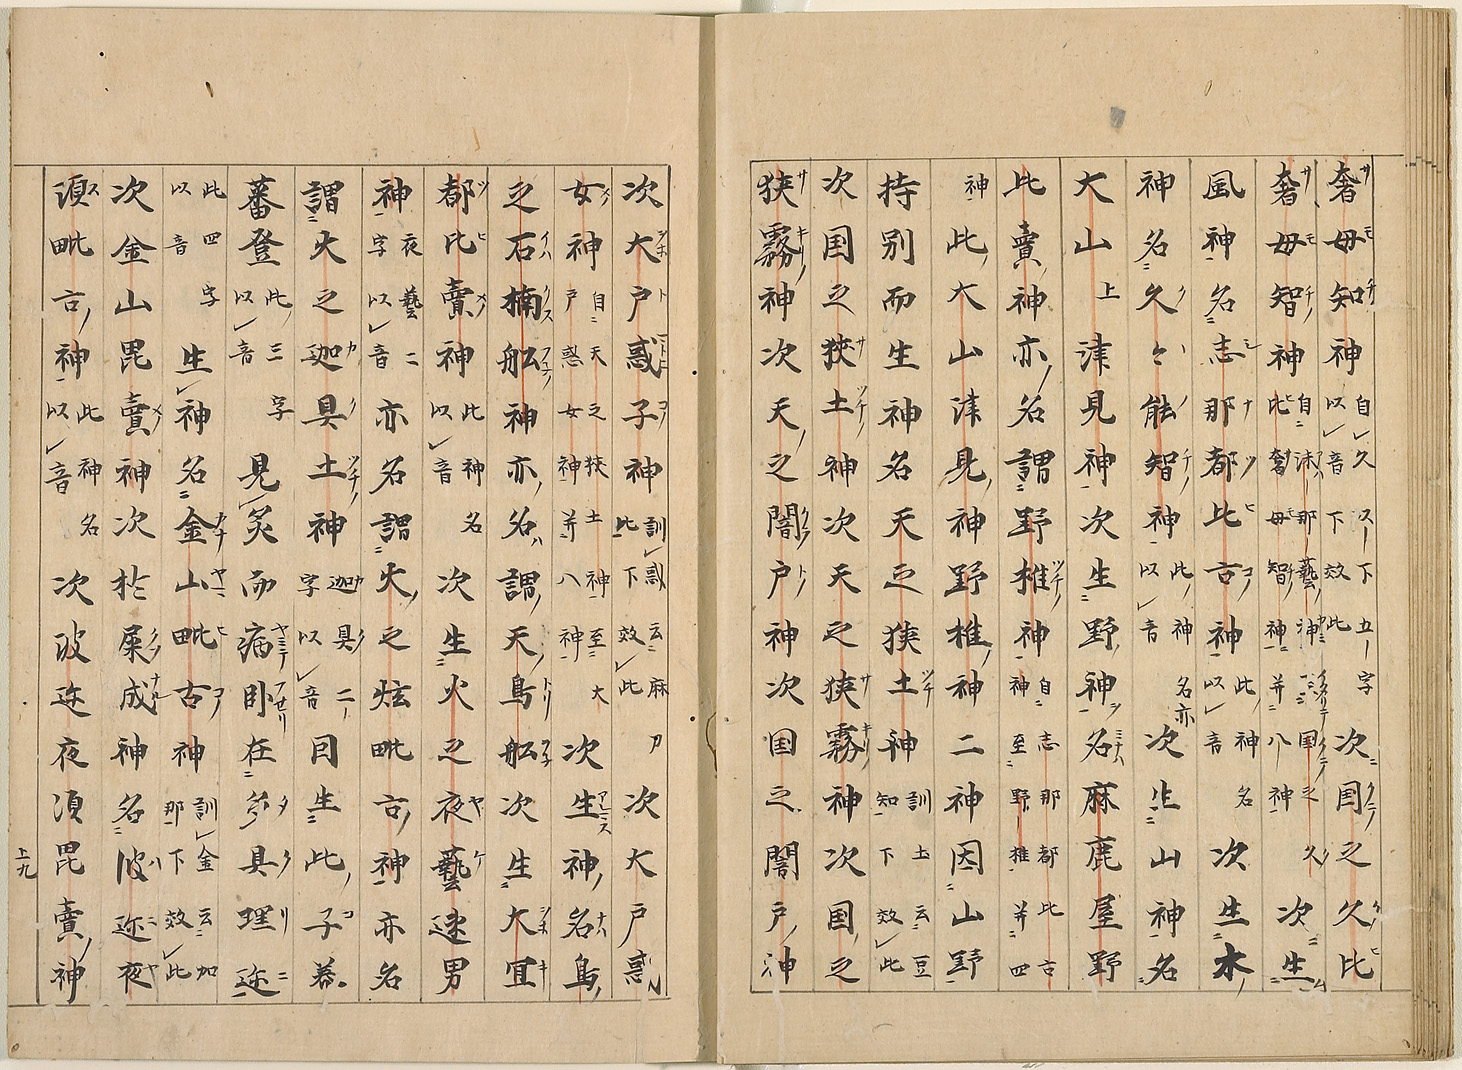 奢母知神自久以下五字以音下效此次国之久比
奢母智神自沫那藝神至国之久比奢母智神并八神次生
風神名志那都比古神此神名以音次生木
神名久々能智神此神名以音次生山神名亦
大山上津見神次生野神名麻鹿屋野
比賣神亦名謂野椎神自志那都比古神至野椎并四
神此大山津見神野椎神二神因山野
持別而生神名天之狭土神訓土云豆知下效此
次国之狭土神次天之狭霧神次国之
狭霧神次天之闇戸神次国之闇戸神
次大戸惑子神訓惑云麻刀比下效此次大戸惑
女神自天之狭土神至大戸惑女神并八神次生神名鳥
之石楠舩神亦名謂天鳥舩次生大宜
都比賣神此神名以音次生火之夜藝速男
神夜藝二字以音亦名謂火之炫毗古神亦名
謂火之迦具土神迦具二字以音因生此子美
蕃登此三字以音見炙而病臥在多具理迩
此四字以音生神名金山毗古神訓金云加那下效此
次金山毘賣神次於屎成神名波迩夜
須毗古神此神名以音次波迩夜須毘賣神
上九